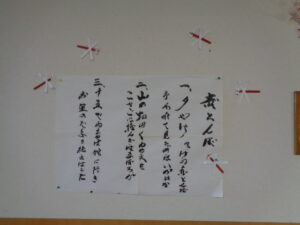 赤とんぼ
一、夕やけ小やけの赤とんぼ
負われて見たのはいつの日か
二、山の畑のくわの実を
こかごに摘んだはまぼろしか
三、十五でねえやは嫁に行き
お里のたよりも絶えはてた